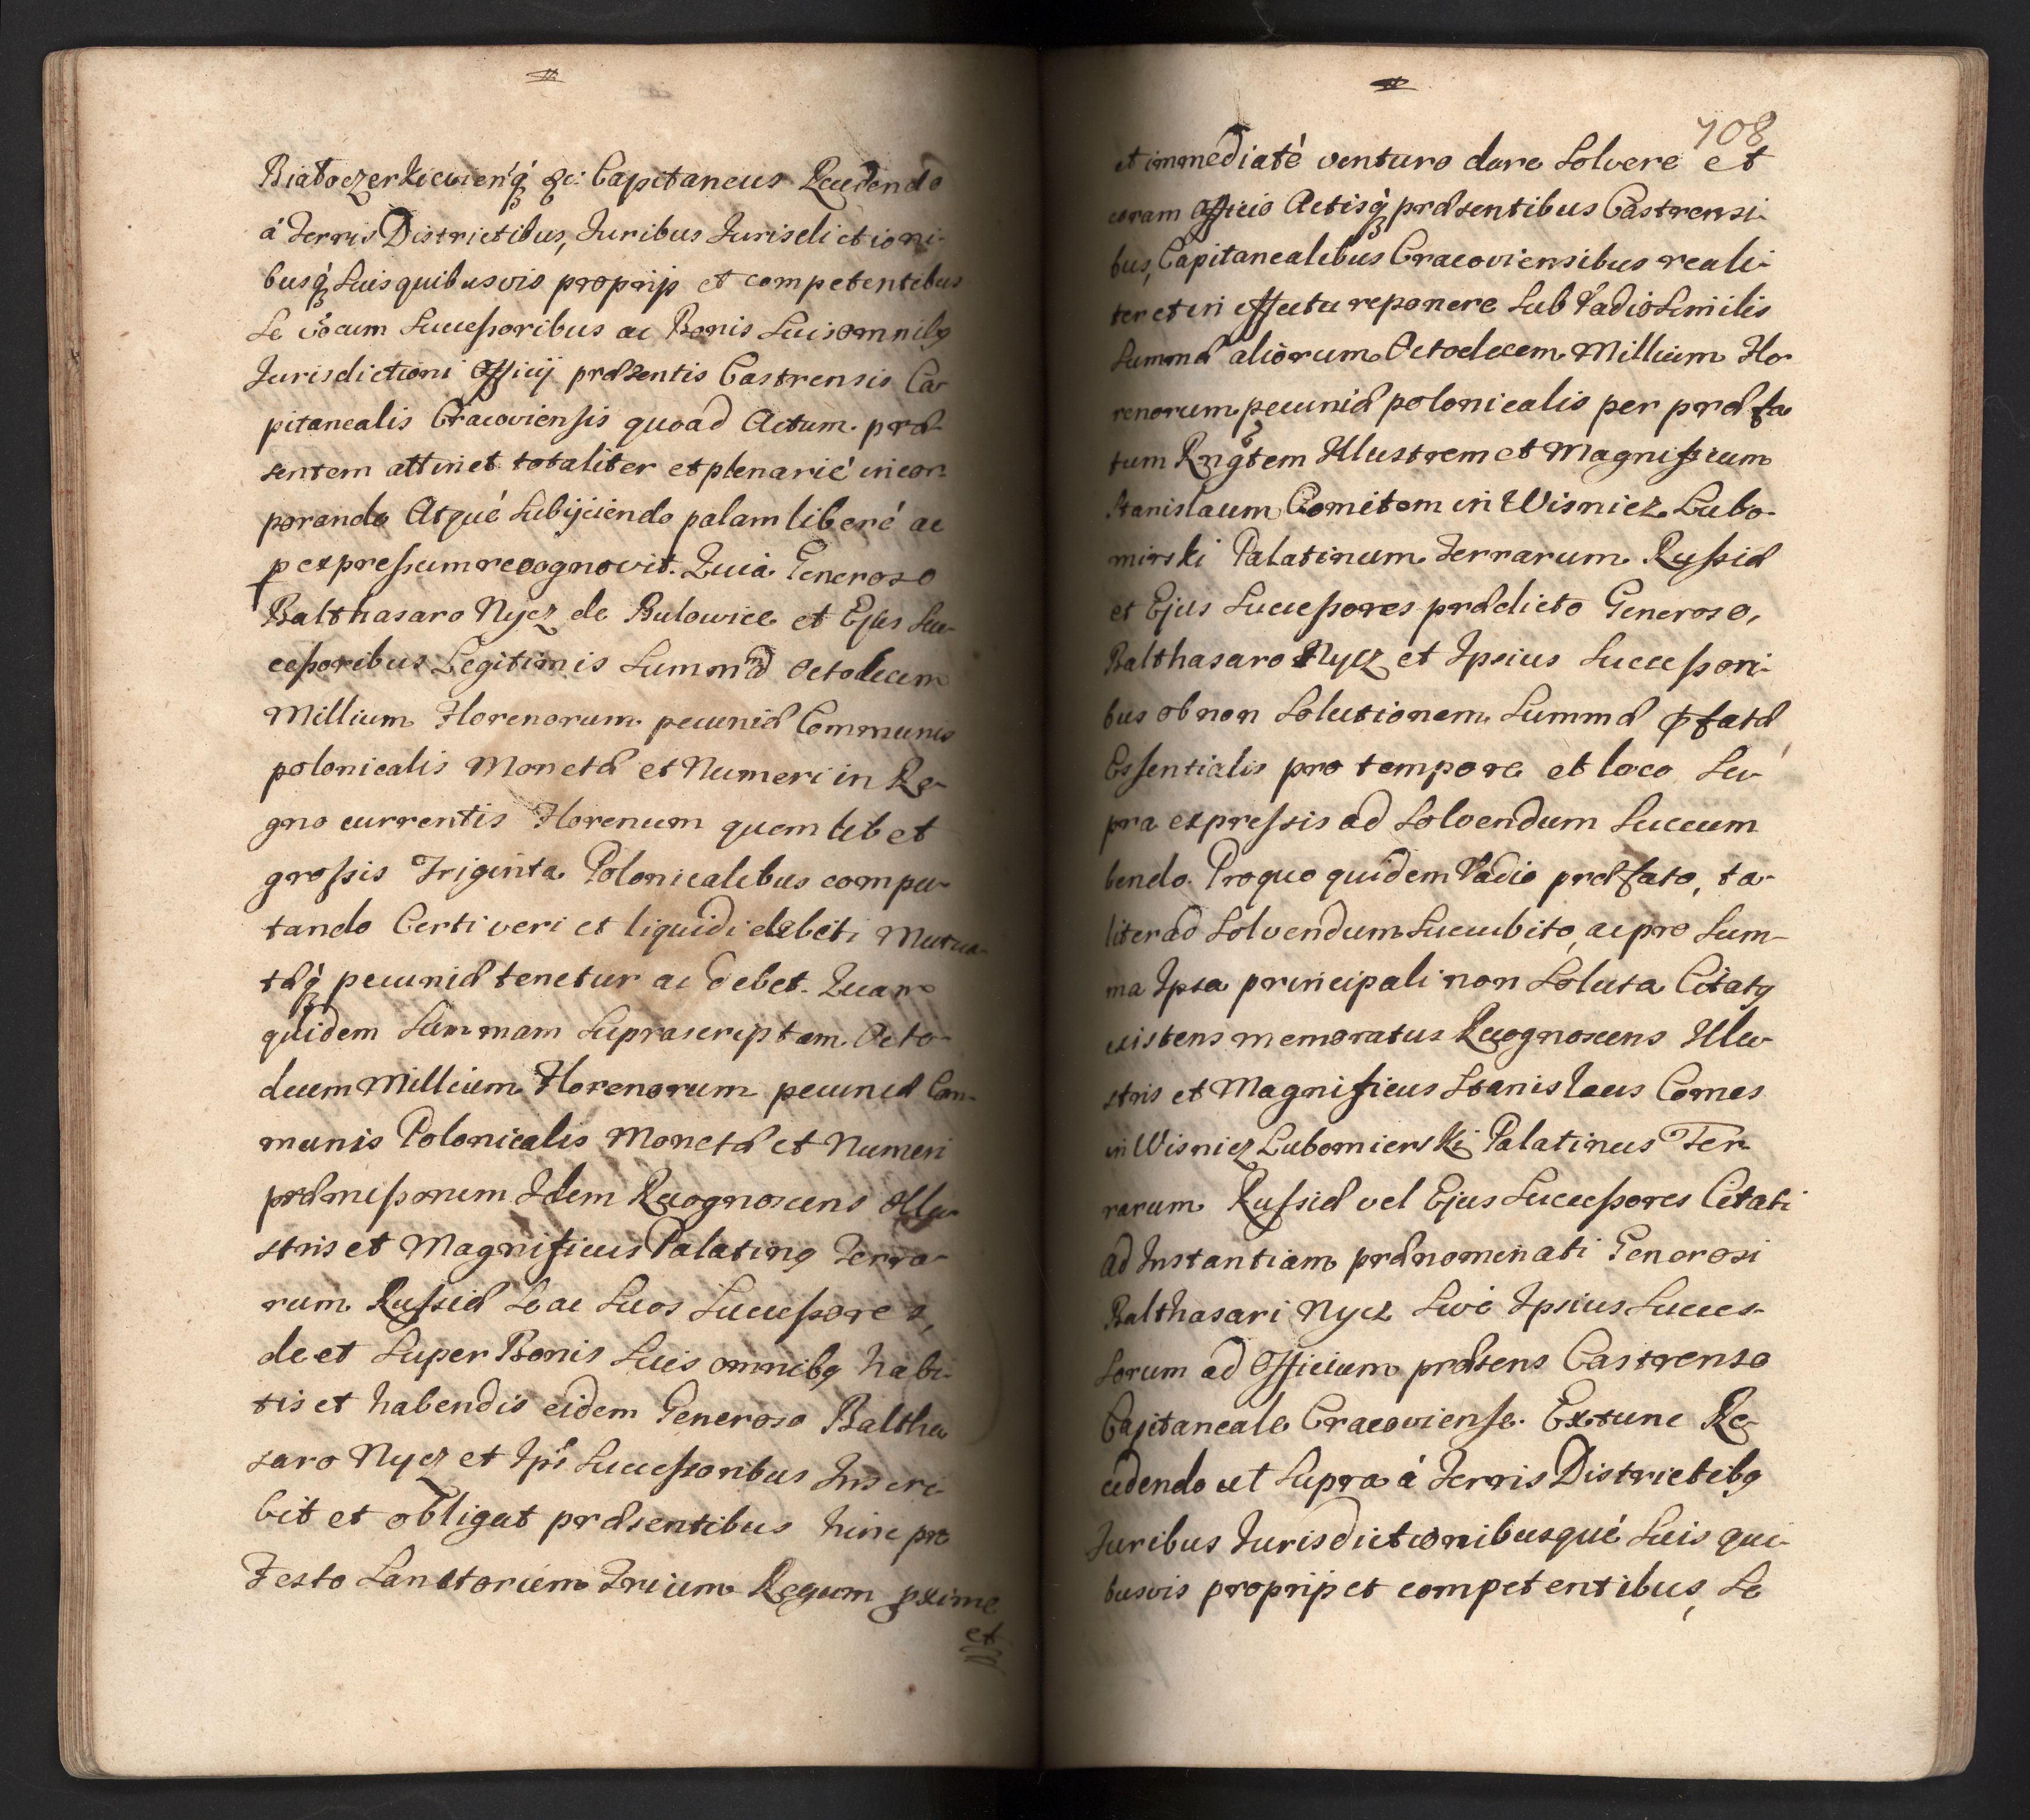 Białoczerkiewien'q́ &c: Capitaneus Recedendo
á Terris Districtibus, Juribus Jurisdictioni-
busq́ Suis quibusvis proprijs et competentibus
Se v̄ocum Successoribus ac Bonis Suis omnibq
Jurisdictioni Officij præsentis Castrensis Ca-
pitanealis Cracoviensis quoad Actum præ-
sentem attinet totaliter et plenarié incor-
porando Atqué Subijciendo palam liberé ac
p expressum recognovit. Quia Generoso
Balthasaro Nycz de Bulowice et Ejus Suc-
cessoribus Legitimis Summæ Octodecem
Millium Florenorum pecuniæ Communis
polonicalis Monetæ et Numeri in Re-
gno currentis Florenum quemlibet
grossis Triginta Polonicalibus compu-
tando Certi veri et liquidi debiti Mutua-
tæq́ pecuniæ tenetur ac debet. Quam
quidem Summam Suprascriptam Octo-
decem Millium Florenorum pecuniæ Com-
munis Polonicalis Monetæ et Numeri
præmissorum Idem Recognoscens Illu-
stris et Magnificus Palatinq Terra-
rum Russiæ Se ac Suos Successores,
de et Super Bonis Suis omnibq habi-
tis et habendis eidem Generoso Baltha-
saro Nycz et Ips̄ Successoribus Inscri-
bit et obligat præsentibus hinc pro
Festo Sanctorum Trium Regum pxime
et
708
et immediaté venturo dare Solvere et
coram Officio Actisq́ præsentibus Castrensi-
bus, Capitanealibus Cracoviensibus reali-
ter et in effectu reponere Sub Vadio Similis
Summæ aliorum Octodecem Millium Flo-
renorum pecuniæ polonicalis per præfa-
tum Rngtem Illustrem et Magnificum
Stanislaum Comitem in Wisnicz Lubo-
mirski Palatinum Terrarum Russiæ
et Ejus Successores prædicto Generoso,
Balthasaro Nycz et Ipsius Successori-
bus ob non Solutionem Summæ p̄fatæ
Essentialis pro tempore et loco Su-
pra expressis ad Solvendum Succum
bendo. Pro quo quidem Vadio præfato, ta-
liter ad Solvendum Sucuubito, ac pro Sum-
ma Ipsa principali non Soluta Citatq
existens memoratus Recognoscens Illu-
stris et Magnificus Stanislaus Comes
in Wisnicz Lubomierski Palatinus Ter-
rarum Russiæ vel Ejus Successores Citati
ad Instantiam prænominati Generosi
Balthasari Nycz Sivé Ipsius Succes-
sorum ad Officium præsens Castrense
Capitaneale Cracoviense. Extunc Re-
cedendo ut Supra á Terris Districtibq
Juribus Jurisdictionibusqué Suis qui-
busvis proprijs et competentibus, Se